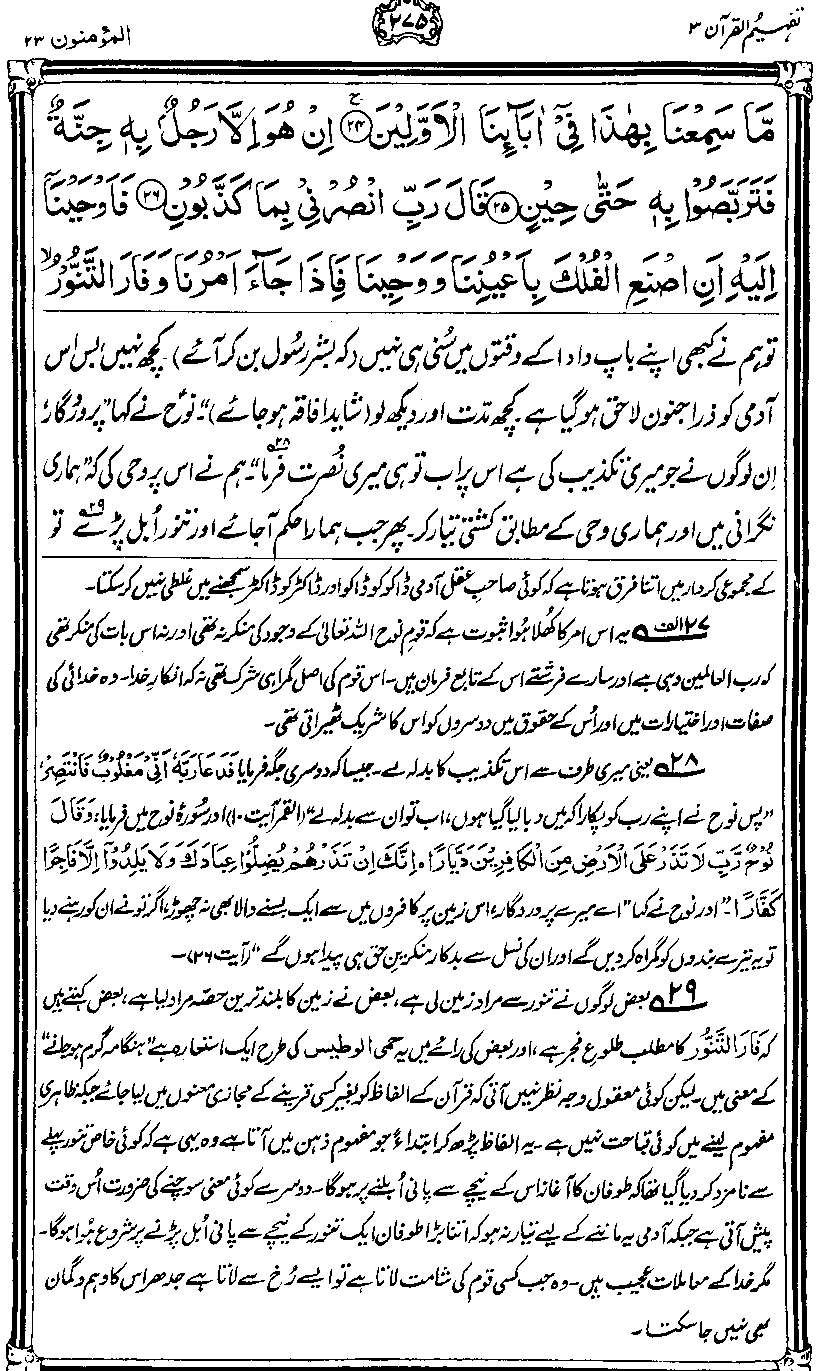 تفہیم القرآن ۳
۲۷۵
المؤمنون ۲۳
مَّا سَمِعْنَا بِهٰذَا فِيْٓ اٰبَآئِنَا الْاَوَّلِيْنَ ۚ﴿۲۴﴾ اِنْ هُوَ اِلَّا رَجُلٌۢ بِهٖ جِنَّةٌ
فَتَرَبَّصُوْا بِهٖ حَتّٰى حِيْنٍ ﴿۲۵﴾ قَالَ رَبِّ انْصُرْنِيْ بِمَا كَذَّبُوْنِ ﴿۲۶﴾ فَاَوْحَيْنَآ
اِلَيْهِ اَنِ اصْنَعِ الْفُلْكَ بِاَعْيُنِنَا وَوَحْيِنَا فَاِذَا جَآءَ اَمْرُنَا وَفَارَ التَّنُّوْرُ ۙ
تو ہم نے کبھی اپنے باپ دادا کے وقتوں میں سُنی ہی نہیں (کہ بشر رسول بن کر آئے)۔ کچھ نہیں، بس اس
آدمی کو ذرا جنون لاحق ہو گیا ہے۔ کچھ مدت اور دیکھ لو (شاید افاقہ ہو جائے)“۔ نوحؑ نے کہا ”پروردگار،
اِن لوگوں نے جو میری تکذیب کی ہے اس پر اب تو ہی میری نُصرت فرما“۲۸۔ ہم نے اس پر وحی کی کہ ”ہماری
نگرانی میں اور ہماری وحی کے مطابق کشتی تیار کر۔ پھر جب ہمارا حکم آ جائے اور تنور اُبل پڑے۲۹ تو
کے مجموعی کردار میں اتنا فرق ہوتا ہے کہ کوئی صاحبِ عقل آدمی ڈاکو کو ڈاکٹر اور ڈاکٹر کو ڈاکو سمجھنے میں غلطی نہیں کر سکتا۔
۲۷ الف یہ اس امر کا کھلا ہوا ثبوت ہے کہ قومِ نوح اللہ تعالیٰ کے وجود کی منکر نہ تھی اور نہ اس بات کی منکر تھی
کہ رب العالمین وہی ہے اور سارے فرشتے اس کے تابع فرمان ہیں۔ اس قوم کی اصل گمراہی شرک تھی نہ کہ انکارِ خدا۔ وہ خدائی کی
صفات اور اختیارات میں اور اُس کے حقوق میں دوسروں کو اس کا شریک ٹھیراتی تھی۔
۲۸ یعنی میری طرف سے اس تکذیب کا بدلہ لے۔ جیسا کہ دوسری جگہ فرمایا فَدَعَا رَبَّهٗٓ اَنِّيْ مَغْلُوْبٌ فَانْتَصِرْ،
”پس نوح نے اپنے رب کو پکارا کہ میں دبا لیا گیا ہوں، اب تو ان سے بدلہ لے“ (القمر آیت ۱۰) اور سورۂ نوح میں فرمایا، وَقَالَ
نُوْحٌ رَّبِّ لَا تَذَرْ عَلَى الْاَرْضِ مِنَ الْكَافِرِيْنَ دَيَّارًا ہ اِنَّكَ اِنْ تَذَرْهُمْ يُضِلُّوْا عِبَادَكَ وَلَا يَلِدُوْٓا اِلَّا فَاجِرًا
كَفَّارًا۔ ”اور نوح نے کہا ”اے میرے پروردگار، اس زمین پر کافروں میں سے ایک بسنے والا بھی نہ چھوڑ، اگر تو نے ان کو رہنے دیا
تو یہ تیرے بندوں کو گمراہ کر دیں گے اور ان کی نسل سے بدکار منکرینِ حق ہی پیدا ہوں گے“ (آیت ۲۶)۔
۲۹ بعض لوگوں نے تنور سے مراد زمین لی ہے، بعض نے زمین کا بلند ترین حصہ مراد لیا ہے، بعض کہتے ہیں
کہ فَارَ التَّنُّوْر کا مطلب طلوعِ فجر ہے، اور بعض کی رائے میں یہ حمی الوطیس کی طرح ایک استعارہ ہے ”ہنگامہ گرم ہو جانے“
کے معنی میں۔ لیکن کوئی معقول وجہ نظر نہیں آتی کہ قرآن کے الفاظ کو بغیر کسی قرینے کے مجازی معنوں میں لیا جائے جبکہ ظاہری
مفہوم لینے میں کوئی قباحت نہیں ہے۔ یہ الفاظ پڑھ کر ابتداءً جو مفہوم ذہن میں آتا ہے وہ یہی ہے کہ کوئی خاص تنور پہلے
سے نامزد کر دیا گیا تھا کہ طوفان کا آغاز اس کے نیچے سے پانی اُبلنے پر ہوگا۔ دوسرے کوئی معنی سوچنے کی ضرورت اُس وقت
پیش آتی ہے جبکہ آدمی یہ ماننے کے لیے تیار نہ ہو کہ اتنا بڑا طوفان ایک تنور کے نیچے سے پانی اُبل پڑنے پر شروع ہوا ہوگا۔
مگر خدا کے معاملات عجیب ہیں۔ وہ جب کسی قوم کی شامت لاتا ہے تو ایسے رُخ سے لاتا ہے جدھر اس کا وہم و گمان
بھی نہیں جا سکتا۔